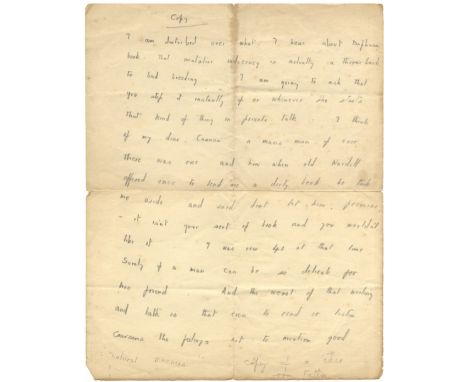 Copy
I am disturbed over what I hear about
book. That imitative indecency is actually a throw back
to bad breeding. I am going to ask that
you stop it instantly if or whenever she starts
that kind of thing in private talk. I think
of my dear a man's man if ever
there was one and how when old
offered once to lend me a dirty book he took
me aside and said don't let him, promise
- it isn't your sort of book and you wouldn't
like it I was over 40 at that time
Surely if a man can be so delicate for
his friend And the worst of that writing
and talk is that even to read or listen
the feelings not to mention good
natural
copy of a
letter